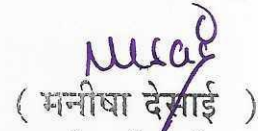 ( मनीषा देसाई )